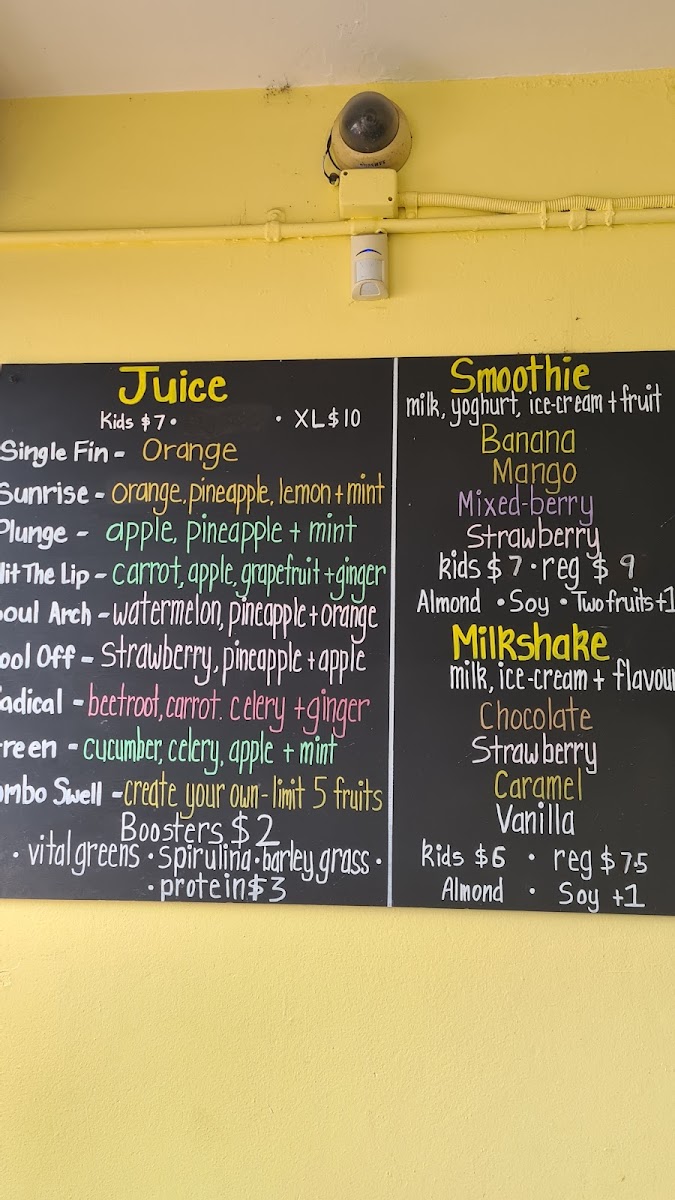 Juice
Kids $7 • • XL $10
Single Fin - Orange
Sunrise - orange, pineapple, lemon + mint
Plunge - apple, pineapple + mint
Hit The Lip - carrot, apple, grapefruit + ginger
Soul Arch - watermelon, pineapple + orange
ool Off - Strawberry, pineapple + apple
adical - beetroot, carrot. celery + ginger
reen - cucumber, celery, apple + mint
ombo Swell - create your own - limit 5 fruits
Boosters $2
• vital greens • spirulina • barley grass •
• protein $3
Smoothie
milk, yoghurt, ice-cream + fruit
Banana
Mango
Mixed-berry
Strawberry
kids $7 • reg $9
Almond • Soy • Two fruits +1
Milkshake
milk, ice-cream + flavour
Chocolate
Strawberry
Caramel
Vanilla
Kids $6 • reg $7.5
Almond • Soy +1